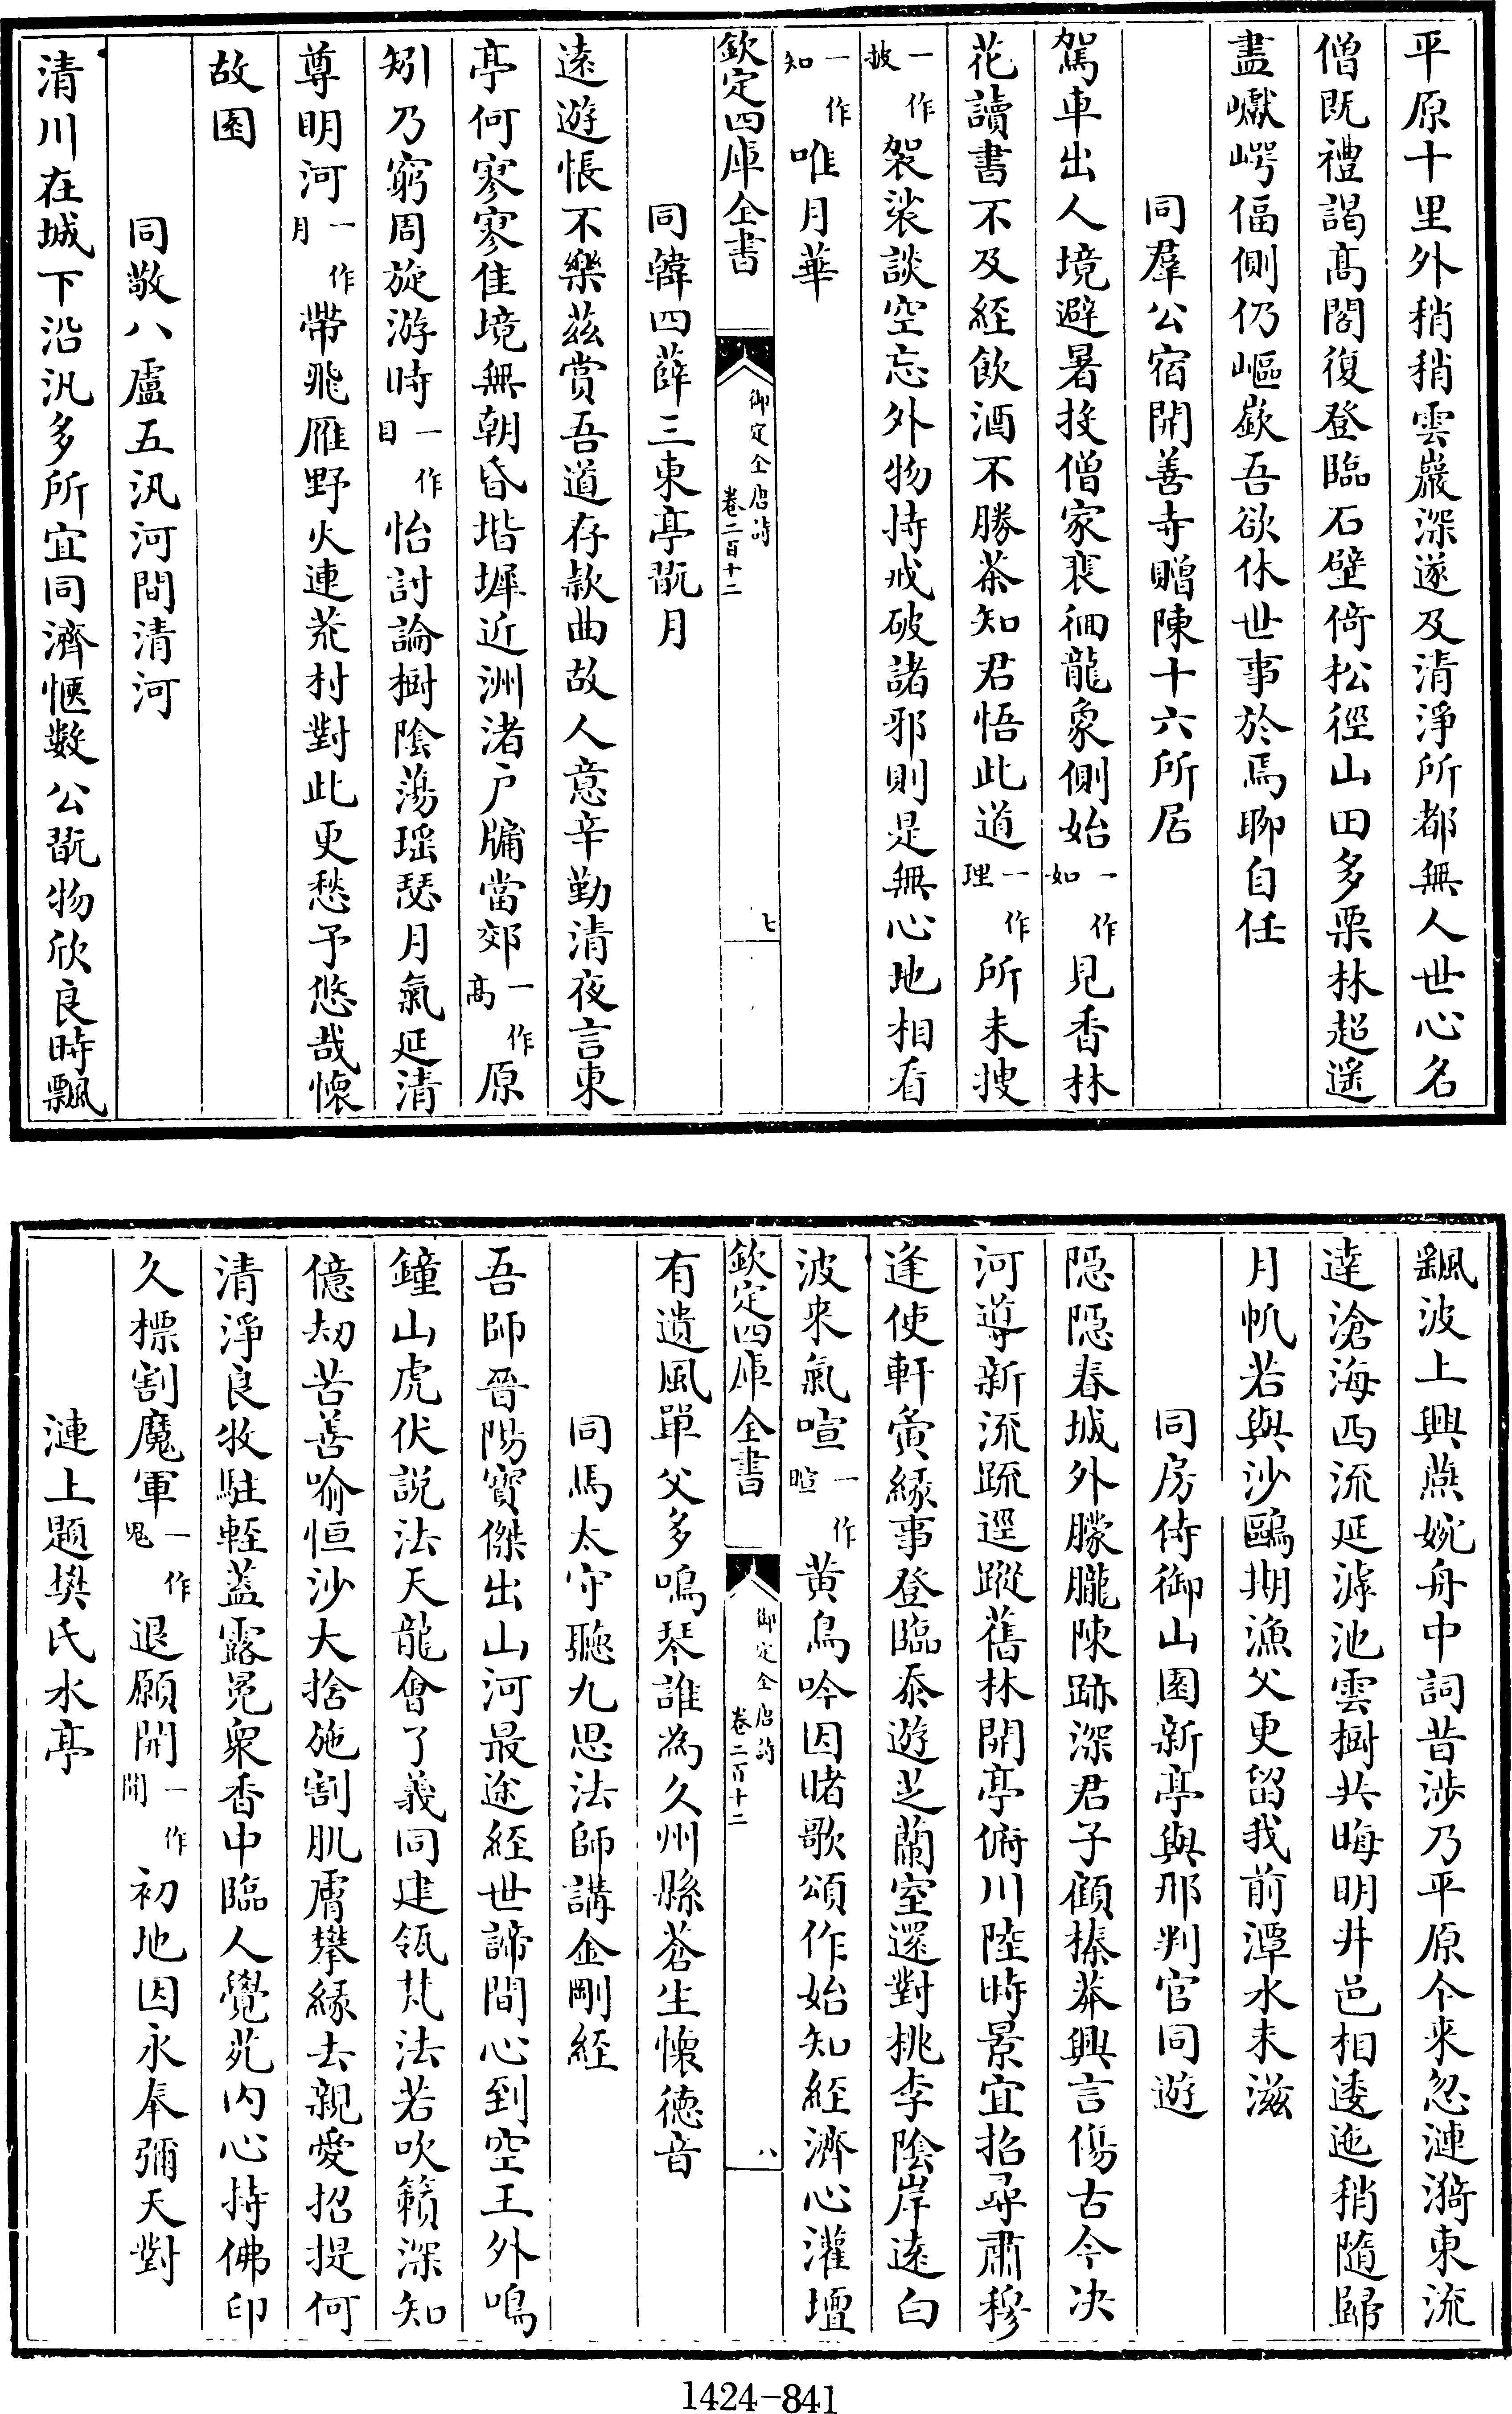 平原十里外稍稍雲巖深遂及清淨所都無人世心名
僧既禮謁髙閣復登臨石壁倚松徑山田多栗林超遥
盡巘崿偪側仍嶇嶔吾欲休世事於焉聊自任
同羣公宿開善寺贈陳十六所居
駕車出人境避暑投僧家裴徊龍象側始一作如見香林
花讀書不及經飲酒不勝茶知君悟此道一作理所未搜
一作披袈裟談空忘外物持戒破諸邪則是無心地相看
一作知唯月華
欽定四庫全書 御定全唐詩 卷二百十二 七
同韓四薛三東亭翫月
遠遊悵不樂茲賞吾道存欵曲故人意辛勤清夜言東
亭何寥寥佳境無朝昏堦墀近洲渚户牖當郊一作髙原
矧乃窮周旋游時一作目怡討論樹陰蕩瑶瑟月氣延清
尊明河一作月帶飛雁野火連荒村對此更愁予悠哉懷
故園
同敬八盧五汎河間清河
清川在城下沿汎多所宜同濟愜數公翫物欣良時飄
飖波上興燕婉舟中詞昔渉乃平原今来忽漣漪東流
達滄海西流延滹池雲樹共晦明井邑相逶迤稍隨歸
月帆若與沙鷗期漁父更留我前潭水未滋
同房侍御山園新亭與邢判官同遊
隠隠春城外朦朧陳跡深君子顧榛莽興言傷古今决
河導新流疏逕蹤舊林開亭俯川陸時景宜招尋肅穆
逢使軒夤縁事登臨忝遊芝蘭室還對桃李陰岸遠白
波来氣喧一作暄黄鳥吟因睹歌頌作始知經濟心灌壇
欽定四庫全書 御定全唐詩 卷二百十二 八
有遺風單父多鳴琴誰為久州縣蒼生懷德音
同馬太守聽九思法師講金剛經
吾師晉陽寳傑出山河最途經世諦間心到空王外鳴
鐘山虎伏説法天龍會了義同建瓴梵法若吹籟深知
億劫苦善喻恒沙大捨施割肌膚攀縁去親愛招提何
清淨良牧駐輕蓋露冕衆香中臨人覺苑内心持佛印
久標割魔軍一作鬼退願開一作聞初地因永奉彌天對
漣上題樊氏水亭
1424-841